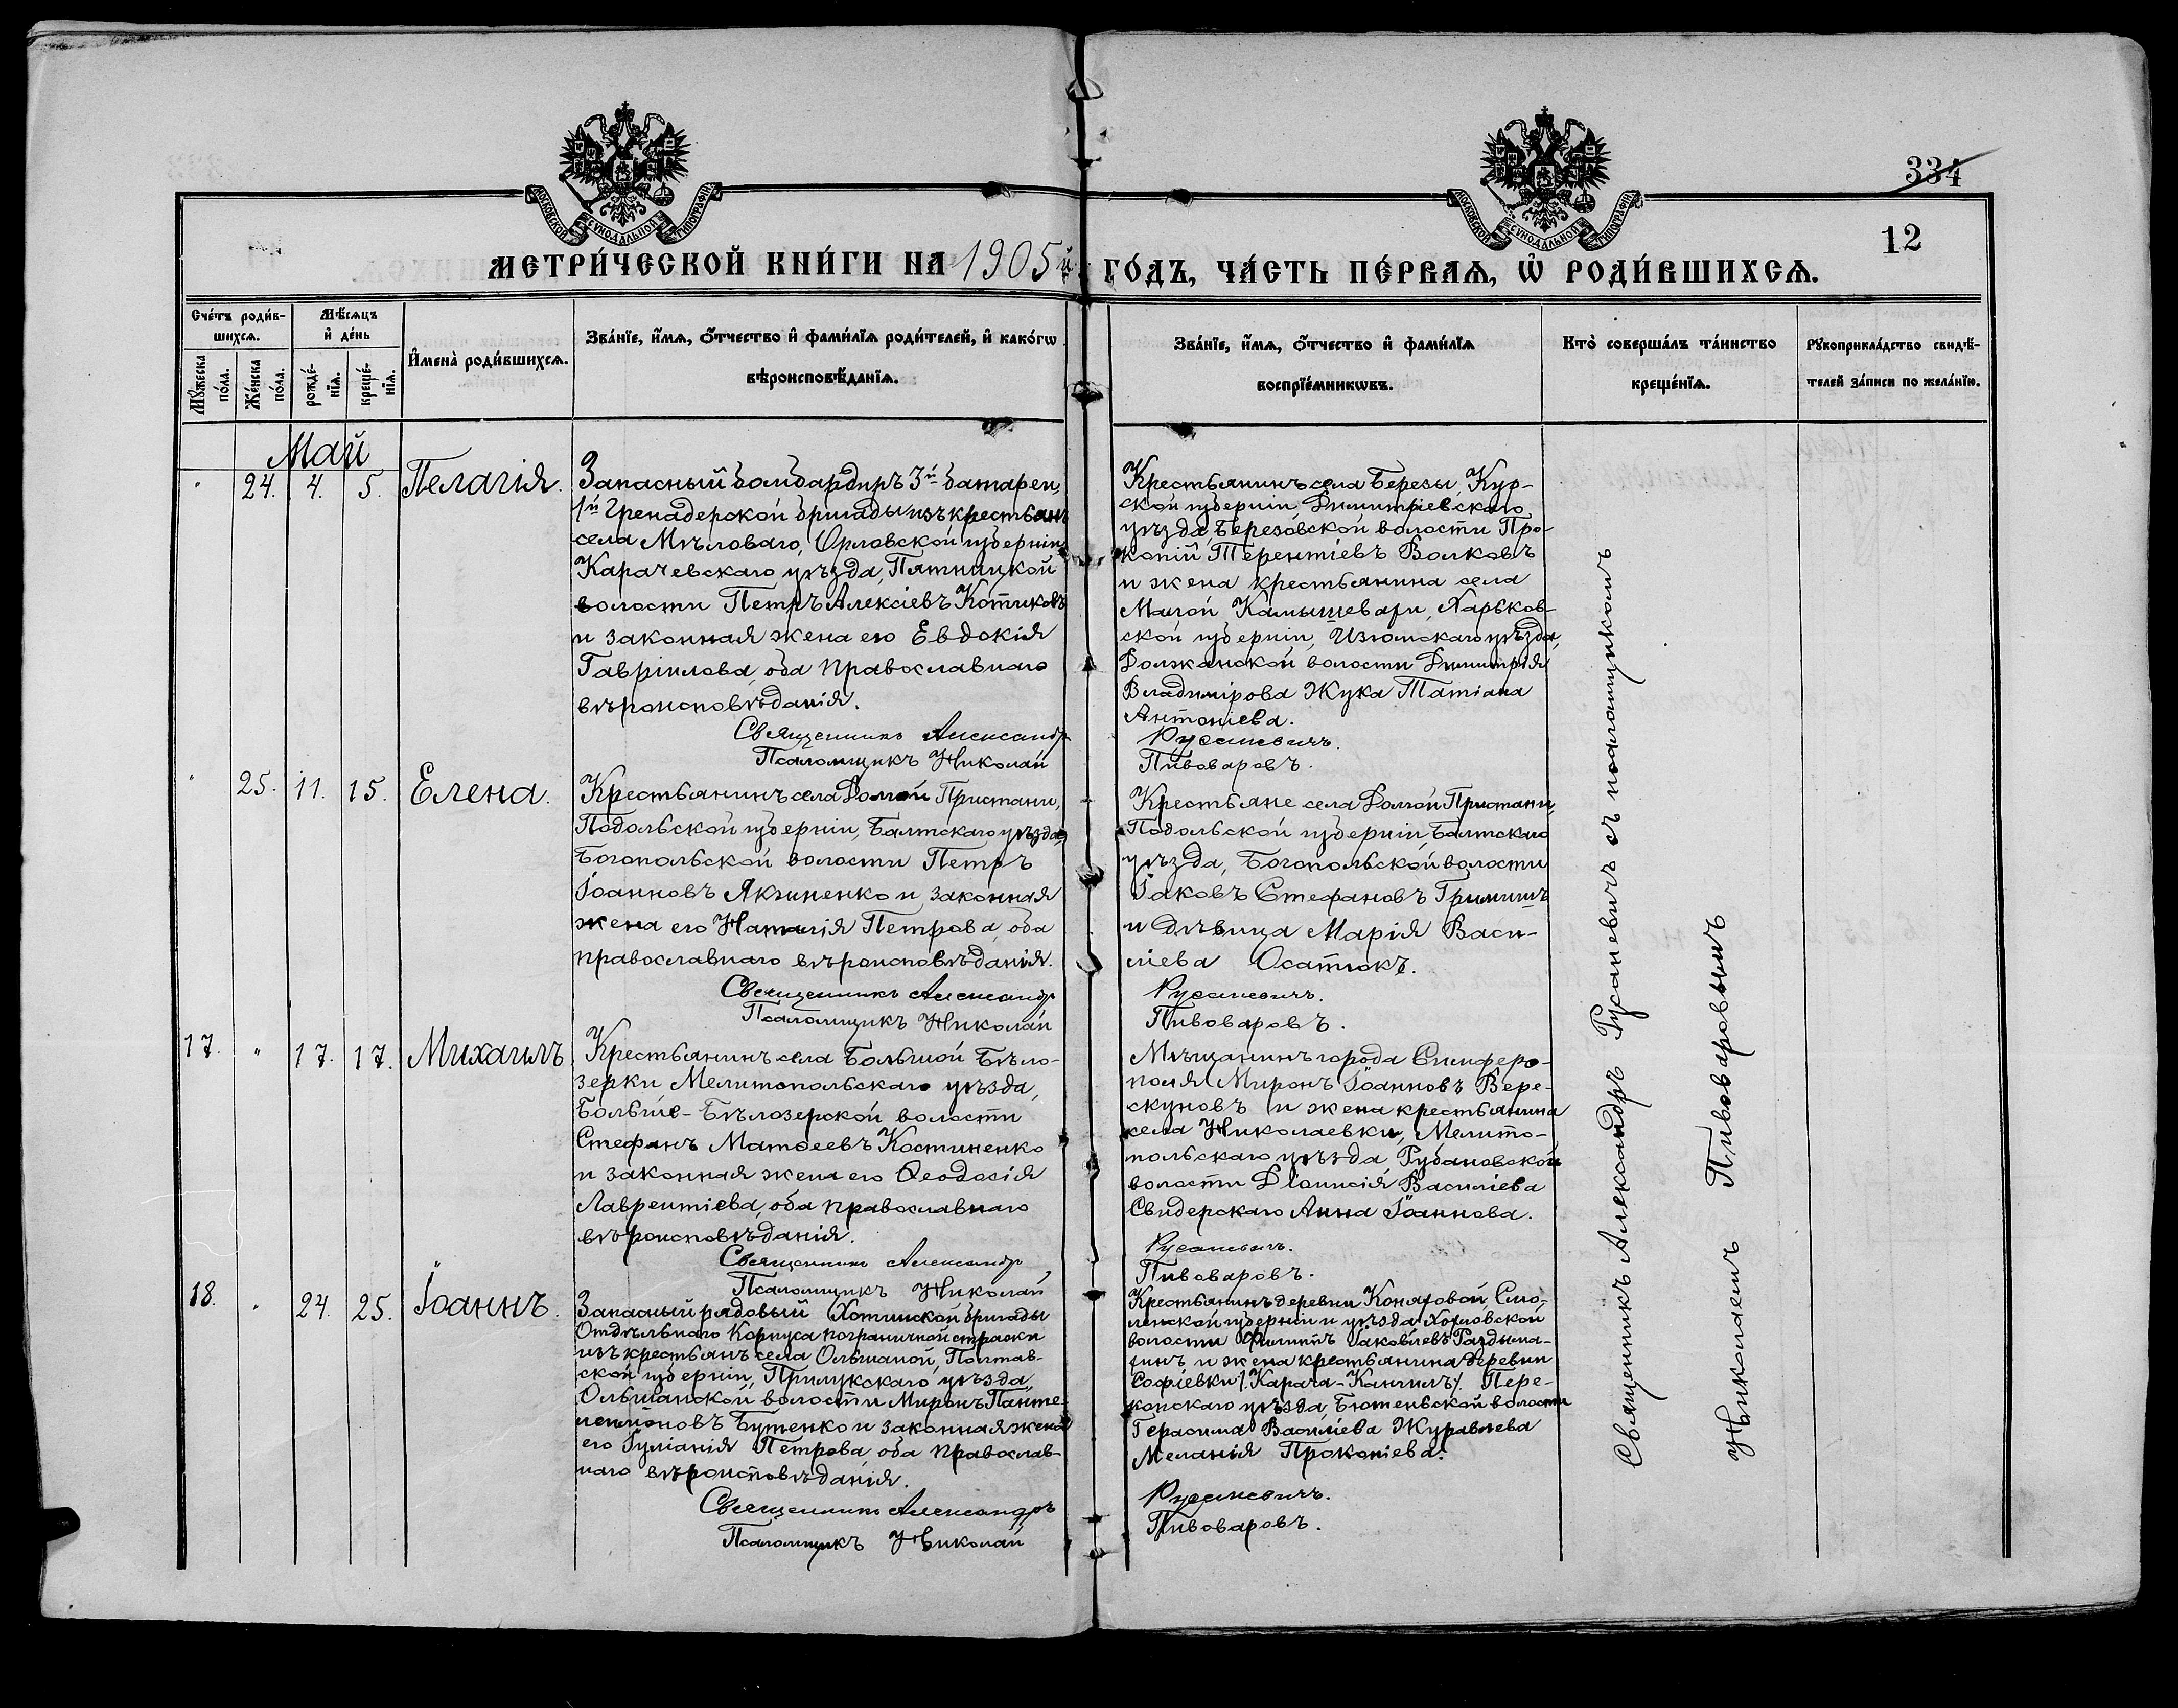 334
12
МОСКОВСКОЙ СѴНОДАЛЬНОЙ ТИПОГРАФІИ
МОСКОВСКОЙ СѴНОДАЛЬНОЙ ТИПОГРАФІИ
МЕТРИ́ЧЕСКОЙ КНИ́ГИ НА 1905й ГО́ДЪ, ЧА́СТЬ ПЕ́РВАѦ, Ѡ РОДИ́ВШИХСѦ.
Сче́тъ роди́в-
шихсѧ.
Мꙋ́жеска по́ла.
Же́нска по́ла.
Мѣ́сѧцъ
и҆ де́нь
рожде́-
нїѧ.
креще́-
нїѧ.
И҆мена̀ роди́вшихсѧ.
Зва́нїе, и҆́мѧ, ѻ҆́тчество и҆ фами́лїѧ роди́телей, и҆ како́гѡ
вѣроисповѣ́данїѧ.
Зва́нїе, и҆́мѧ, ѻ҆́тчество и҆ фами́лїѧ
воспрїе́мникѡвъ.
Кто̀ соверша́лъ та́инство
креще́нїѧ.
Рꙋкоприкла́дство свидѣ́-
телей за́писи по жела́нїю.
Май
" 24. 4. 5. Пелагія.
Запасный бомбардиръ 3й батареи,
1й Гренадерской бригады изъ крестьянъ
села Мѣловаго, Орловской губерніи
Карачевскаго уѣзда, Пятницкой
волости Петръ Алексіевъ Котиковъ
и законная жена его Евдокія
Гавріилова, оба православнаго
вѣроисповѣданія.
Священникъ Александр
Псаломщикъ Николай
Крестьянинъ села Березы, Кур-
ской губерніи, Димитріевскаго
уѣзда, Березовской волости Про-
копій Терентіевъ Волковъ
и жена крестьянина села
Малой Камышевахи, Харьков-
ской губерніи, Изюмскаго уѣзда,
Должанской волости Димитрія
Владимірова Жука Татіана
Антоніева.
Русаневичъ.
Пивоваровъ.
" 25. 11. 15. Елена.
Крестьянинъ села Долгой Пристани,
Подольской губерніи, Балтскаго уѣзда
Богопольской волости Петръ
Іоанновъ Якименко и законная
жена его Наталія Петрова, оба
православнаго вѣроисповѣданія.
Священникъ Александр
Псаломщикъ Николай
Крестьяне села Долгой Пристани,
Подольской губерніи, Балтскаго
уѣзда, Богопольской волости
Іаковъ Стефановъ
и дѣвица Марія Васи-
ліева Осатюкъ.
Русаневичъ.
Пивоваровъ.
17. " 17. 17. Михаилъ
Крестьянинъ села Большой Бѣло-
зерки Мелитопольскаго уѣзда,
Больше-Бѣлозерской волости
Стефанъ Матѳеевъ Костиненко
и законная жена его Ѳеодосія
Лаврентіева, оба православнаго
вѣроисповѣданія.
Священникъ Александр
Псаломщикъ Николай
Мѣщанинъ города Симферо-
поля Миронъ Іоанновъ Вере-
скуновъ и жена крестьянина
села Николаевки, Мелито-
польскаго уѣзда, Рубановской
волости Діонисія Василіева
Свидерскаго Анна Іоаннова.
Русаневичъ.
Пивоваровъ.
18. " 24. 25. Іоаннъ.
Запасный рядовый Хотинской бригады
Отдѣльнаго Корпуса пограничной стражи
изъ крестьянъ села Ольшаной, Полтав-
ской губерніи, Прилукскаго уѣзда,
Ольшанской волости Миронъ Панте-
леимоновъ Бутенко и законная жена
его Іуліанія Петрова, оба православ-
наго вѣроисповѣданія.
Священникъ Александръ
Псаломщикъ Николай
Крестьянинъ деревни Смо-
ленской губерніи и уѣзда, Хохловской
волости Филиппъ Іаковлевъ
и жена крестьянина деревни
Софіевки /: Карага-Канчилъ:/ Пере-
копскаго уѣзда, Бютеньской волости
Герасима Василіева Журавлева
Меланія Прокопіева.
Русаневичъ.
Пивоваровъ.
Священникъ Александръ Русаневичъ съ псаломщикомъ
Николаемъ Пивоваровымъ